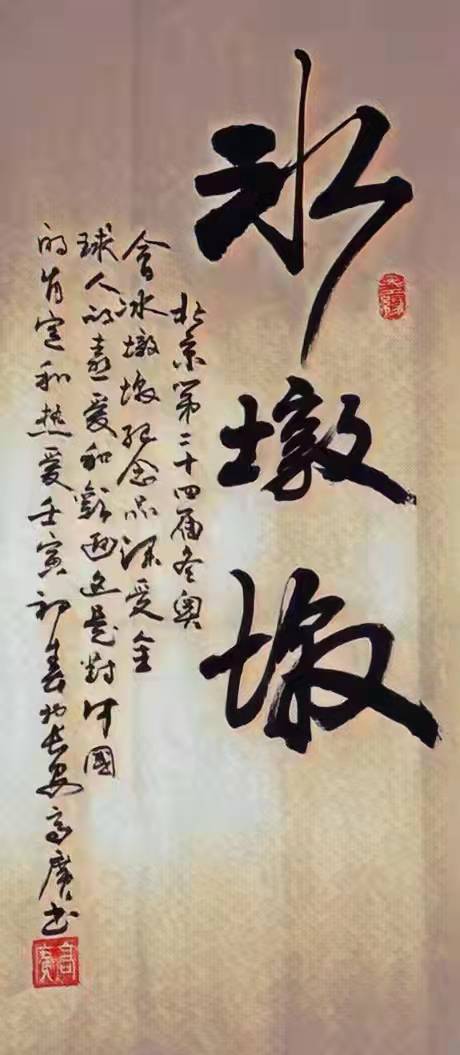 冰墩墩
北京第二十四届冬奥
会冰墩墩纪念品深受全
球人的喜爱和歡迎这是對中國
的肯定和热爱壬寅初春於长安高廣书
高廣